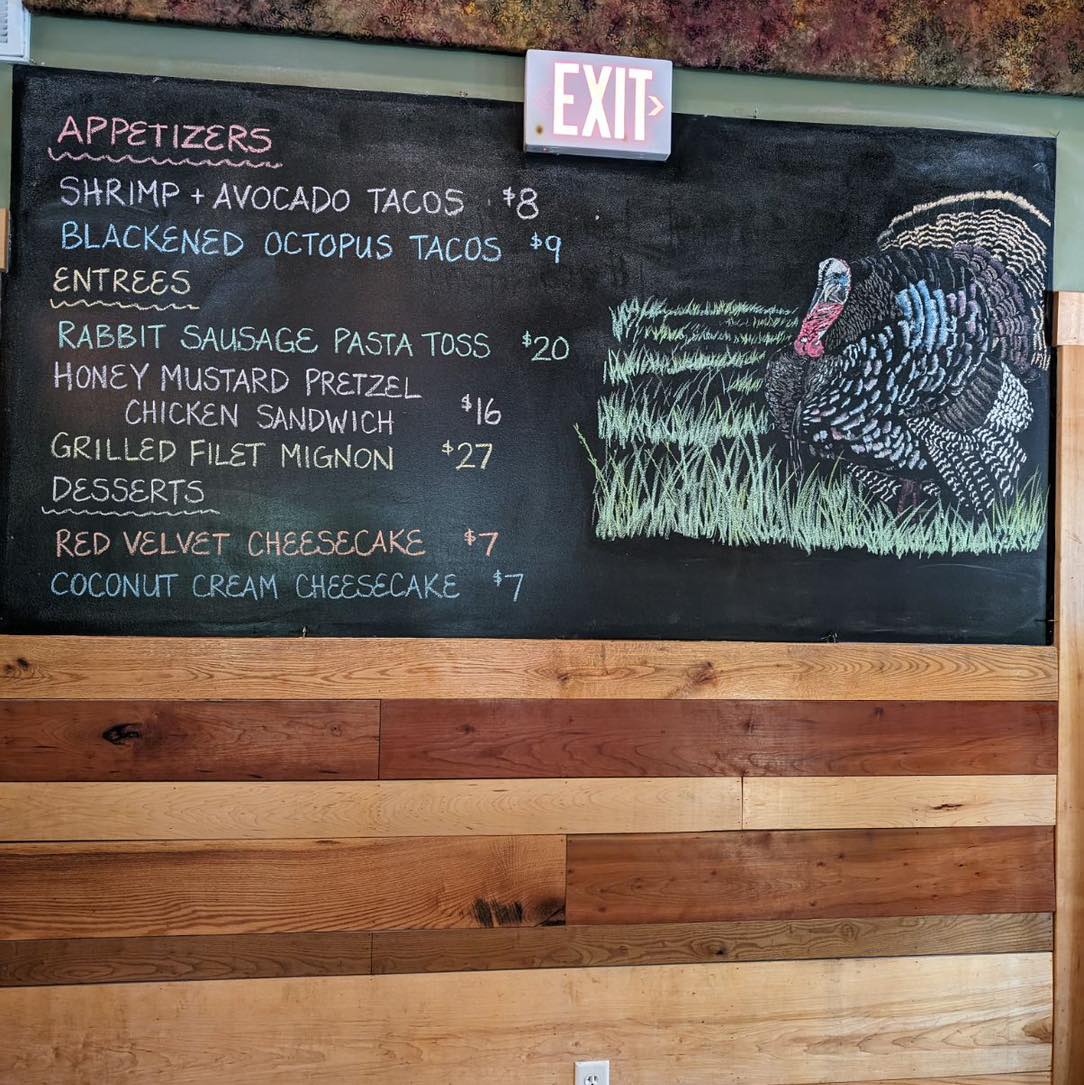 EXIT >
APPETIZERS
SHRIMP + AVOCADO TACOS $8
BLACKENED OCTOPUS TACOS $9
ENTREES
RABBIT SAUSAGE PASTA TOSS $20
HONEY MUSTARD PRETZEL
CHICKEN SANDWICH $16
GRILLED FILET MIGNON $27
DESSERTS
RED VELVET CHEESECAKE $7
COCONUT CREAM CHEESECAKE $7